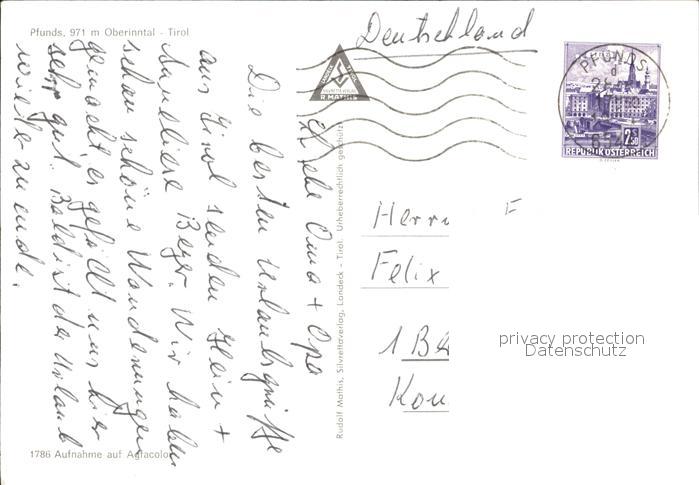 Pfunds, 971 m Oberinntal - Tirol
Deutschland
R. MATHIS
PFUNDS
2.50
REPUBLIK ÖSTERREICH
Liebe Oma + Opa
Die besten Urlaubsgrüße
aus Tirol senden Hein +
Anneliese Beyer. Wir haben
schon schöne Wanderungen
gemacht, es gefällt uns hier
sehr gut. Bald ist der Urlaub
wieder zu ende.
Rudolf Mathis, Silvrettaverlag, Landeck - Tirol. Urheberrechtlich geschützt
Herrn F
Felix
1 B
Kon
privacy protection
Datenschutz
1786 Aufnahme auf Agfacolor